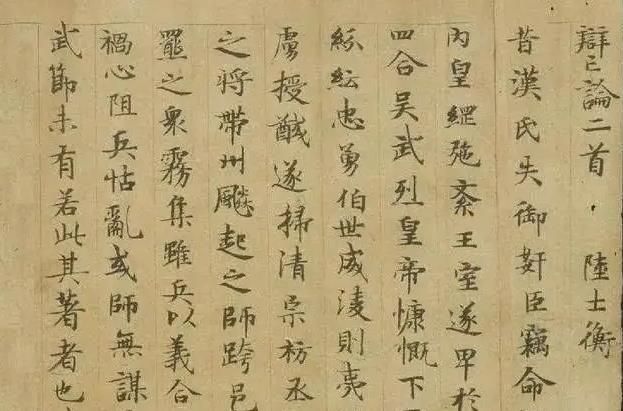 辯亡論二首 陸士衡
昔漢氏失御奸臣竊命
內皇綱弛紊王室遂卑於
四合吴武烈皇帝慷慨下
紛紜忠勇伯世威淩則夷
虜授馘遂掃清宗祊丞
之將帶州飈起之師跨邑
羆之衆霧集雖兵以義合
禍心阻兵怙亂或師無謀
武節未有若此其著者也